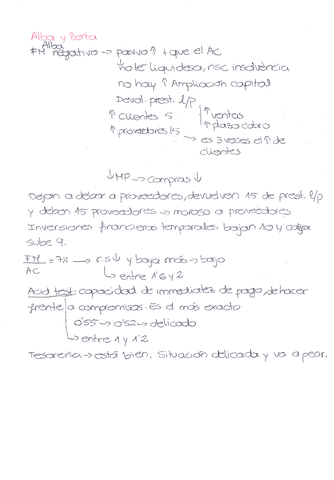 Alba y Berta
Alba
FM negativo → pasivo ↑ + que el AC
no te liquidesa, risc insolvència
no hay ↑ Ampliación capital
Deval. prest. l/p
↑ clientes 5 ↑ ventas
↑ proveedores 15 ↑ plazo cobro
→ es 3 veces el ↑ de clientes
↓ MP → compras ↓
Dejan a deber a proveedores, devuelven 15 de prest. l/p
y deben 15 proveedores → moroso a proveedores
Inversiones financieras temporales bajan 10 y
sube 9.
FM = 7% → r.s ↓ y baja más → bajo
AC → entre 1'6 y 2
Acid test: capacidad de inmediatez de pago, de hacer
frente a compromisos. Es el más exacto
0'55 → 0'52 → delicado
→ entre 1 y 1'2
Tesoreria → está bien, Situación delicada y va a peor.